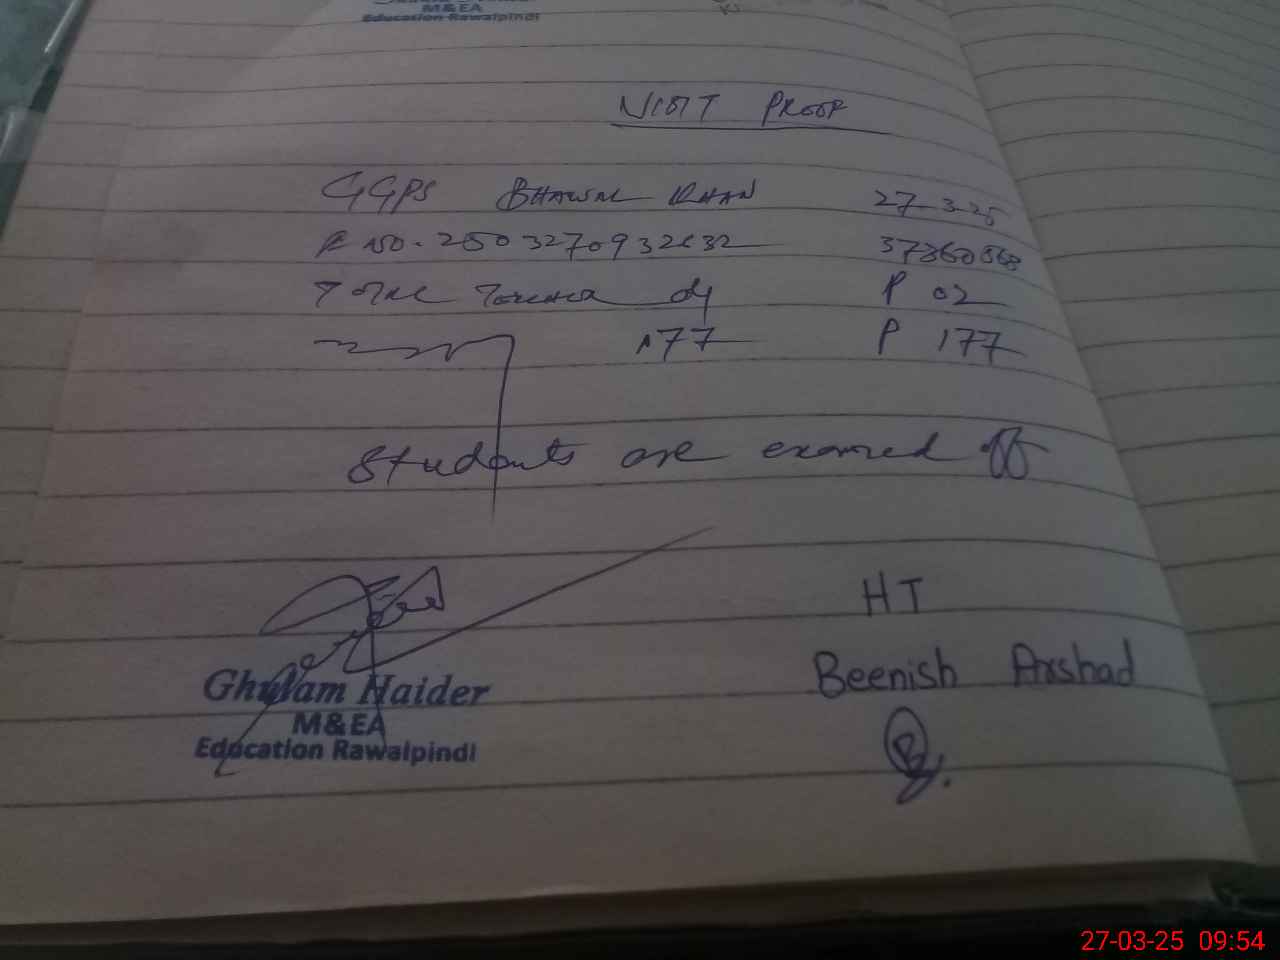 M&EA
Education Rawalpindi
VISIT PROOF
GGPS BHAWAL KHAN 27-3-25
NO. 37360568
TOTAL 04 P 02
177 P 177
Students are examed off
HT
Beenish Arshad
Ghulam Haider
M&EA
Education Rawalpindi
27-03-25 09:54